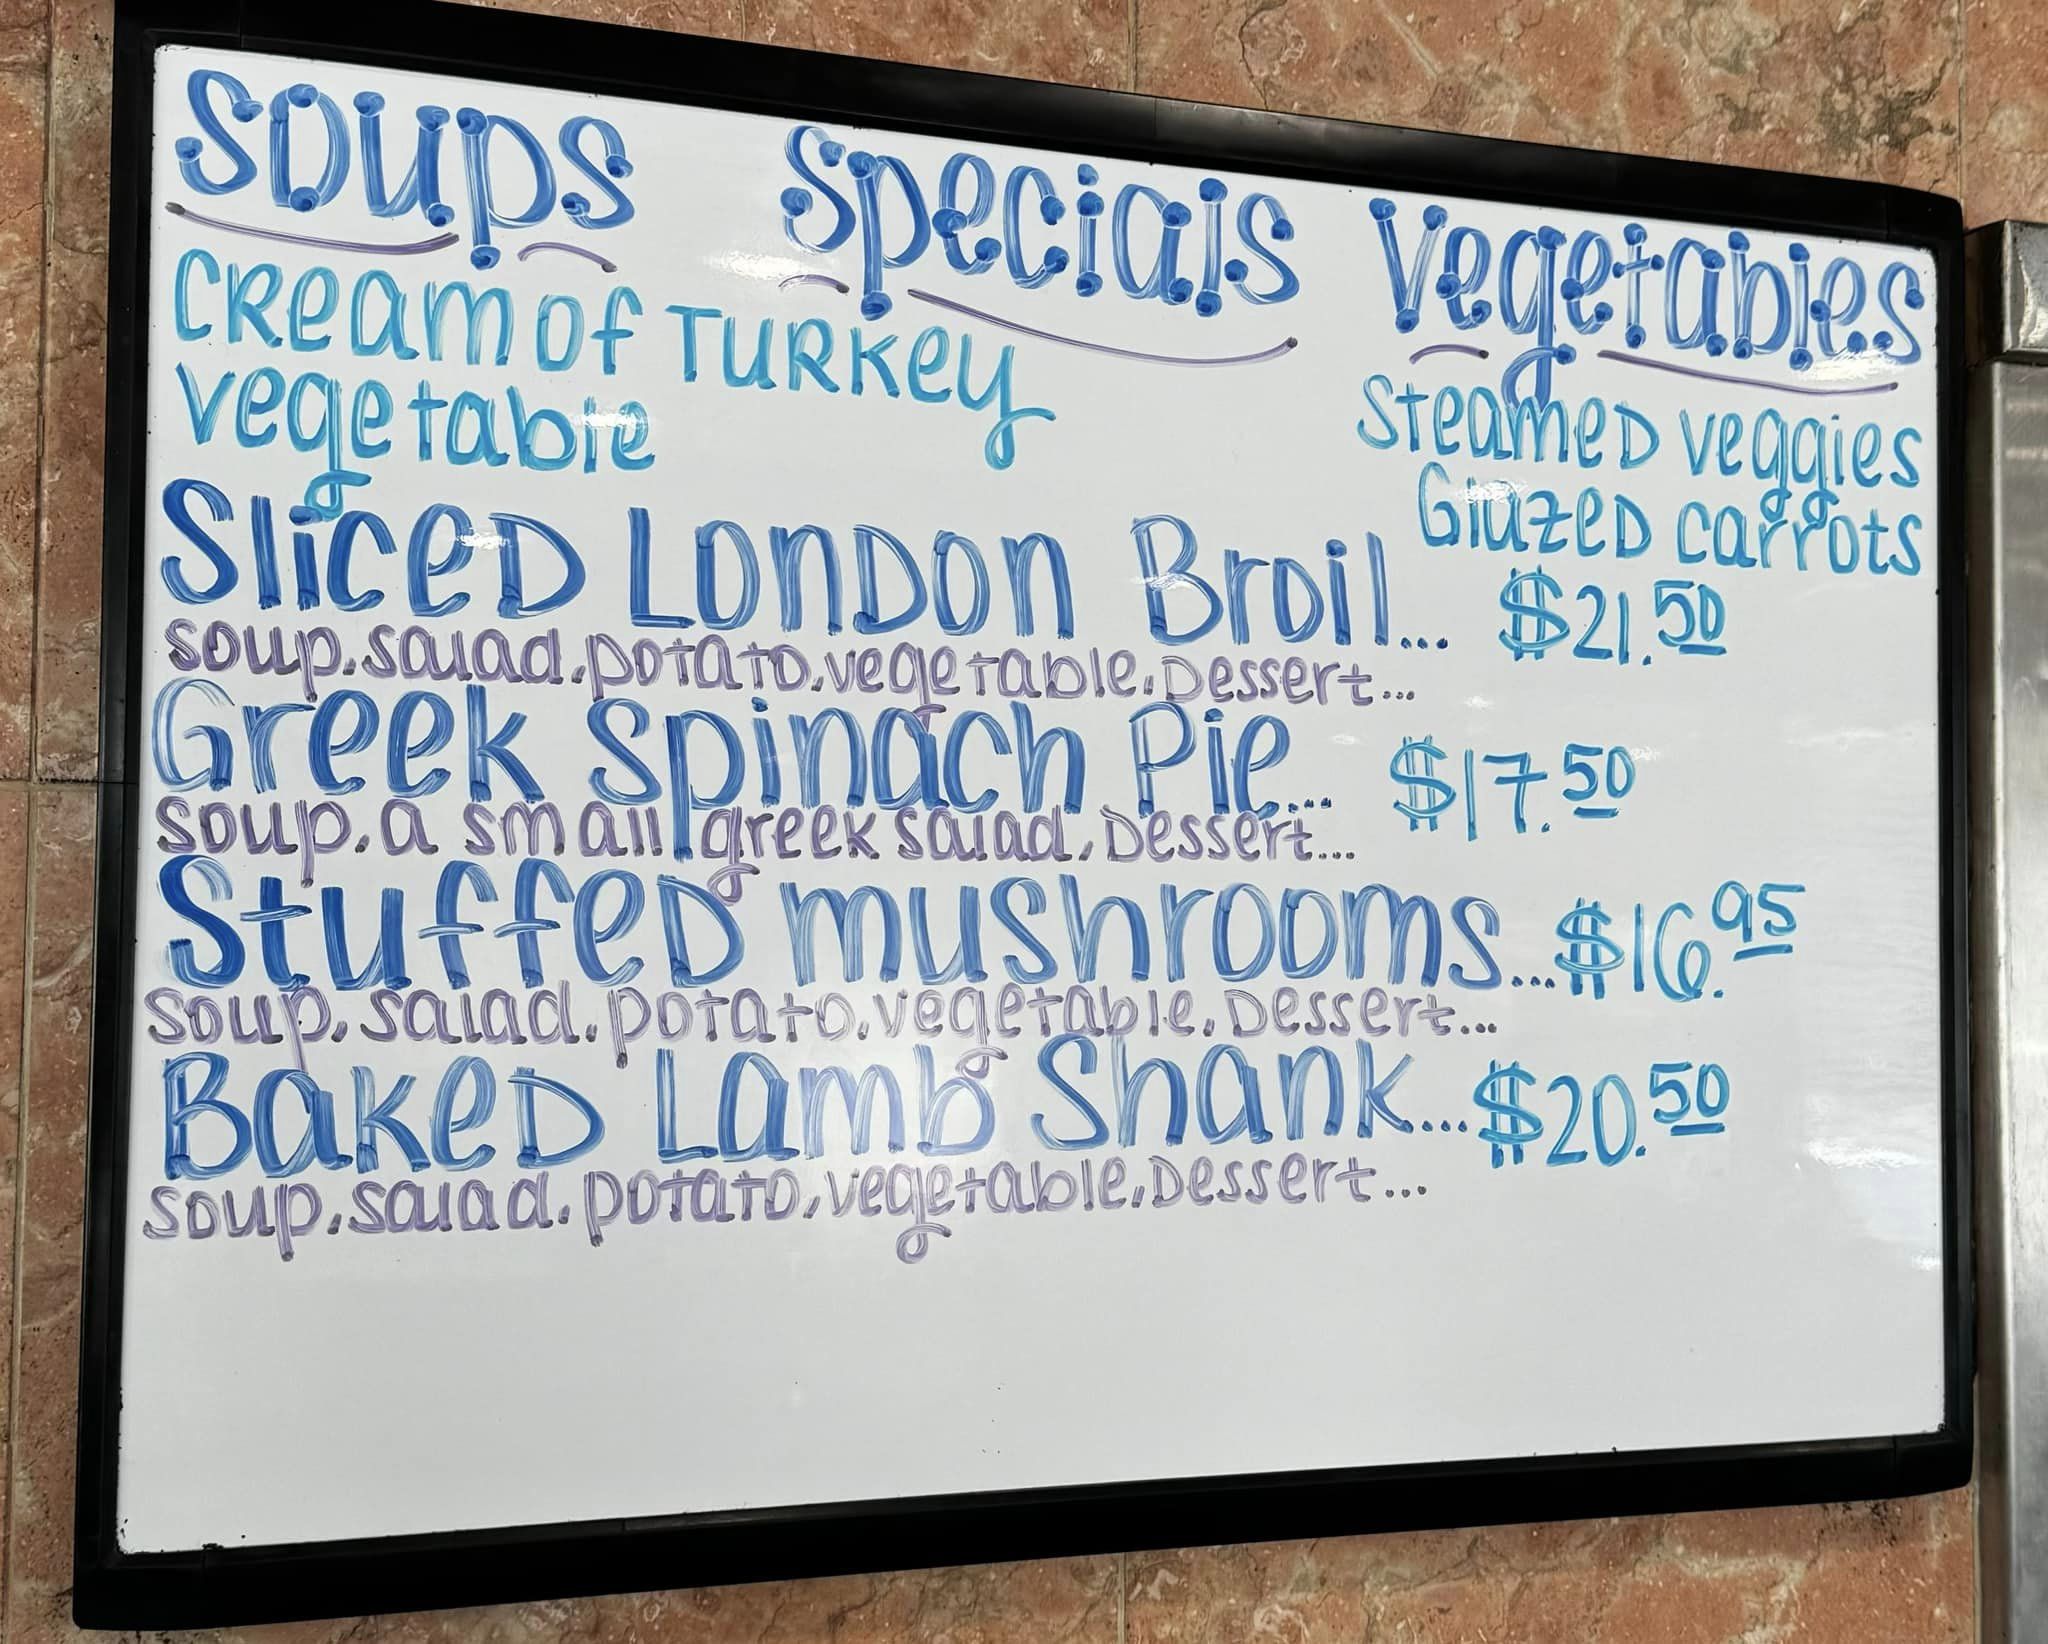 Soups Specials Vegetables
Cream of Turkey
vegetable
Steamed veggies
Glazed carrots
Sliced London Broil... $21.50
soup, salad, potato, vegetable, Dessert...
Greek Spinach Pie... $17.50
soup, a small greek salad, Dessert...
Stuffed mushrooms... $16.95
soup, salad, potato, vegetable, Dessert...
Baked Lamb Shank... $20.50
soup, salad, potato, vegetable, Dessert...